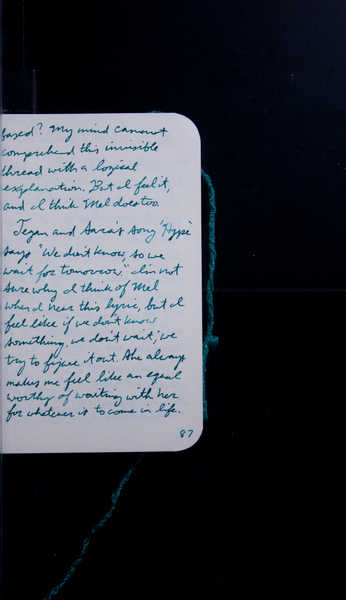 fazed? My mind cannot
comprehend this invisible
thread with a logical
explanation. But I feel it,
and I think Mel does too.
Tegan and Sara's song 'Hype'
says "We don't know, so we
wait for tomorrow." I'm not
sure why I think of Mel
when I hear this lyric, but I
feel like if we don't know
something, we don't wait; we
try to figure it out. She always
makes me feel like an equal
worthy of waiting with her
for whatever is to come in life.
87